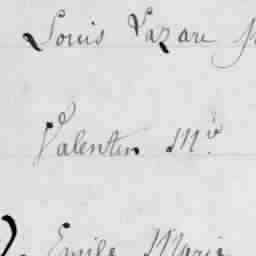 Louis Lazare
Valentin Mie
Emile Marie